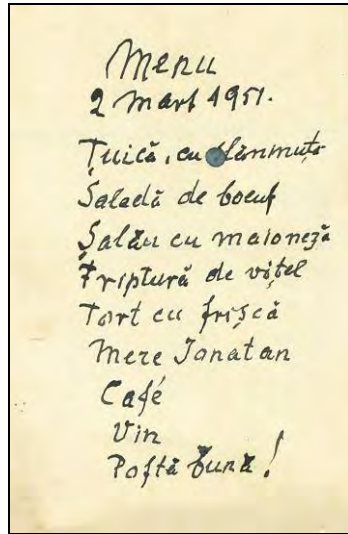 Menu
2 Mart 1951.
Țuică, cu
Salată de boeuf
Șalău cu maioneză
Friptură de vițel
Tort cu frișcă
Mere Jonatan
Café
Vin
Poftă bună!